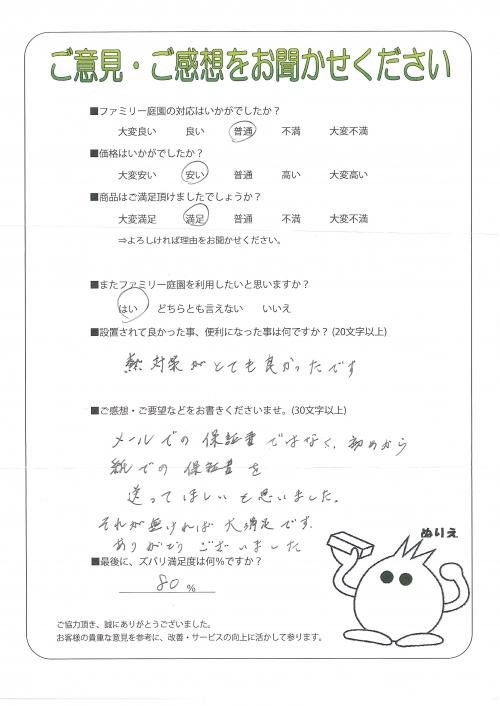 ご意見・ご感想をお聞かせください
■ファミリー庭園の対応はいかがでしたか？
大変良い 良い 普通 不満 大変不満
■価格はいかがでしたか？
大変安い 安い 普通 高い 大変高い
■商品はご満足頂けましたでしょうか？
大変満足 満足 普通 不満 大変不満
⇒よろしければ理由をお聞かせください。
■またファミリー庭園を利用したいと思いますか？
はい どちらとも言えない いいえ
■設置されて良かった事、便利になった事は何ですか？(20文字以上)
熱対策がとても良かったです
■ご感想・ご要望などをお書きくださいませ。(30文字以上)
メールでの保証書ではなく、初めから
紙での保証書を
送ってほしいと思いました。
それが無ければ大満足です.
ありがとうございました
ぬりえ
■最後に、ズバリ満足度は何％ですか？
80 %
ご協力頂き、誠にありがとうございました。
お客様の貴重な意見を参考に、改善・サービスの向上に活かして参ります。